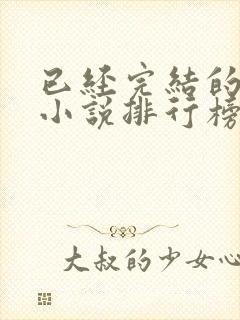 已經完結的
小說排行榜
大叔的少女心